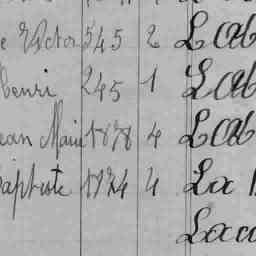 e Victor 545 2 Lab
Henri 245 1 Lab
ean Marie 1878 4 Lab
Baptiste 1124 4 La
Laca